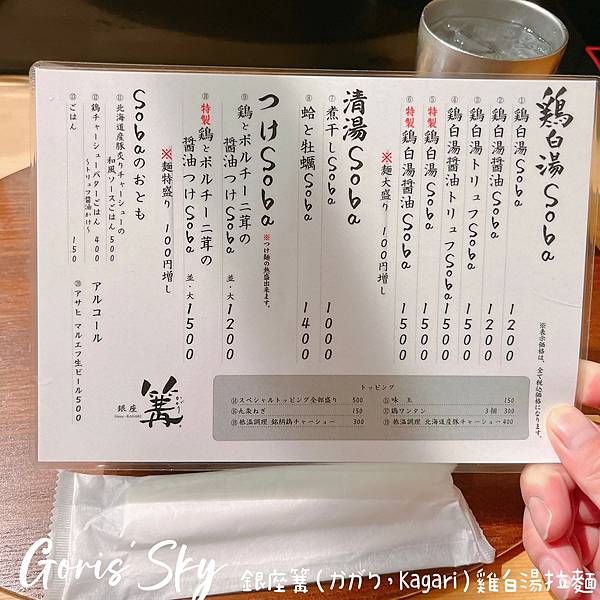 鶏白湯Soba
※表示価格は、全て税込価格になります。
① 鶏白湯Soba 1200
② 鶏白湯醤油Soba 1200
③ 鶏白湯トリュフSoba 1500
④ 鶏白湯醤油トリュフSoba 1500
⑤ 特製 鶏白湯Soba 1500
⑥ 特製 鶏白湯醤油Soba 1500
※麺大盛り 100円増し
清湯Soba
⑦ 煮干しSoba 1000
⑧ 蛤と牡蠣Soba 1400
つけSoba
※つけ麺の熱盛出来ます。
⑨ 鶏とポルチーニ茸の
醤油つけSoba 並・大 1200
⑩ 特製 鶏とポルチーニ茸の
醤油つけSoba 並・大 1500
※麺特盛り 100円増し
Sobaのおとも
⑪ 北海道産豚炙りチャーシューの
和風ソースごはん 500
⑫ 鶏チャーシューバターごはん 400
〜トリュフ醤油かけ〜
⑬ ごはん 150
アルコール
⑳ アサヒ マルエフ生ビール 500
トッピング
⑭ スペシャルトッピング全部盛り 500
⑮ 味玉 150
⑯ 九条ねぎ 150
⑰ 鶏ワンタン 3個 300
⑱ 低温調理 銘柄鶏チャーシュー 300
⑲ 低温調理 北海道産豚チャーシュー 400
銀座
Ginza-KAGARI
篝
かがり
Goris' Sky
銀座篝(かがり,Kagari)雞白湯拉麵